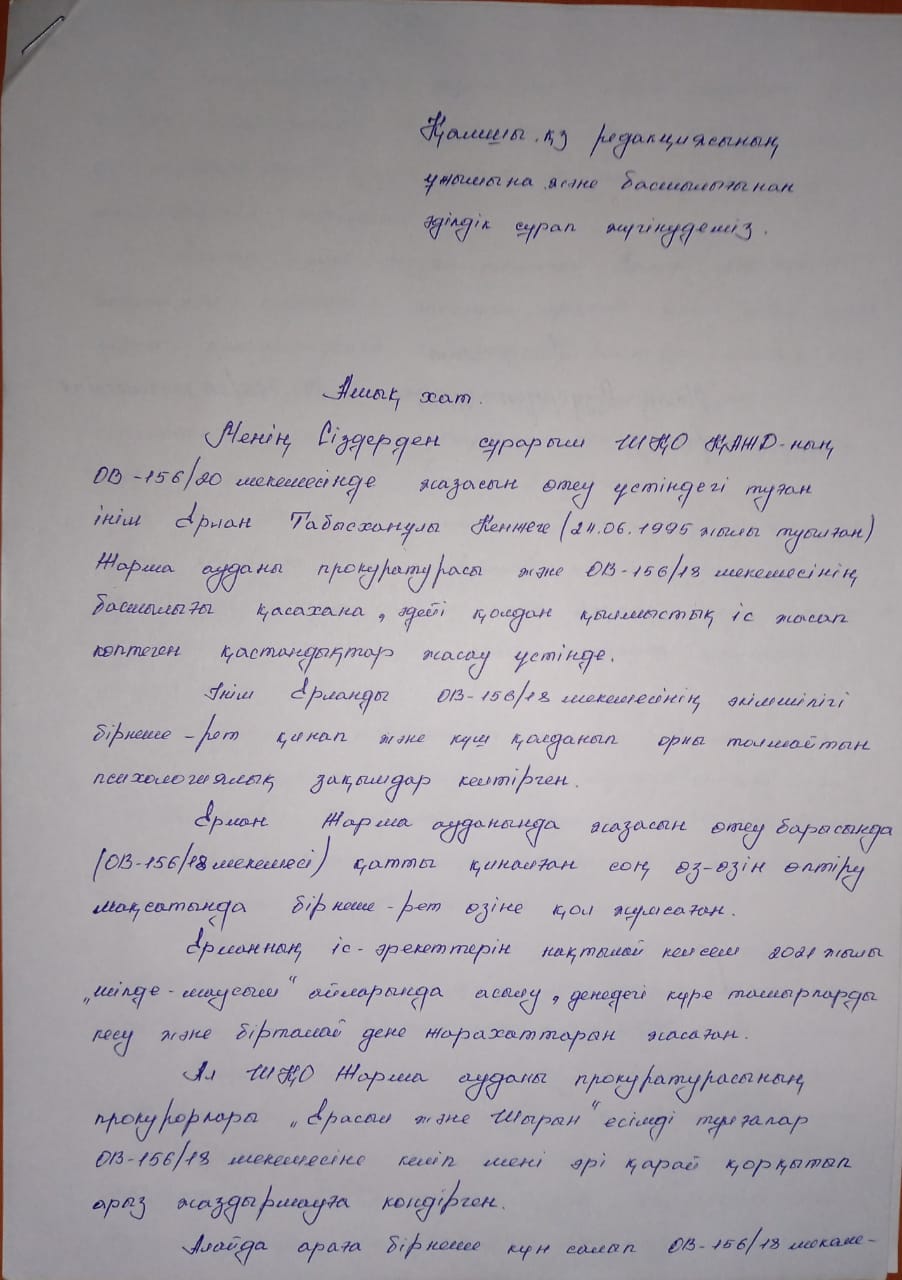 Қамшы.қз редакциясының
ұжымына және басшылығынан
әділдік сұрап жүгінудеміз.
Ашық хат.
Менің Сіздерден сұрарым ШҚО ҚАЖД-ның
ОВ-156/20 мекемесінде жазасын өтеу үстіндегі туған
інім Ерлан Табысханұлы Кенжеге (24.06.1995 жылы туылған)
Жарма ауданы прокуратурасы және ОВ-156/18 мекемесінің
басшылығы қасахана, әдейі қолдан қылмыстық іс жасап
көптеген қастандықтар жасау үстінде.
Інім Ерланды ОВ-156/18 мекемесінің әкімшілігі
бірнеше-рет қинап және күш қолданып орны толмайтын
психологиялық зақымдар келтірген.
Ерлан Жарма ауданында жазасын өтеу барысында
(ОВ-156/18 мекемесі) қатты қиналған соң өз-өзін өлтіру
мақсатында бірнеше-рет өзіне қол жұмсаған.
Ерланның іс-әрекеттерін нақтылай кетсем 2021 жылы
„шілде-маусым" айларында асылу, денедегі күре тамырларды
кесу және бірталай дене жарахаттарын жасаған.
Ал ШҚО Жарма ауданы прокуратурасының
прокурорлары „Ерасыл және Шырын" есімді тұлғалар
ОВ-156/18 мекемесіне келіп мені әрі қарай қорқытып
арыз жаздырмауға көндірген.
Алайда араға бірнеше күн салып ОВ-156/18 мекеме-